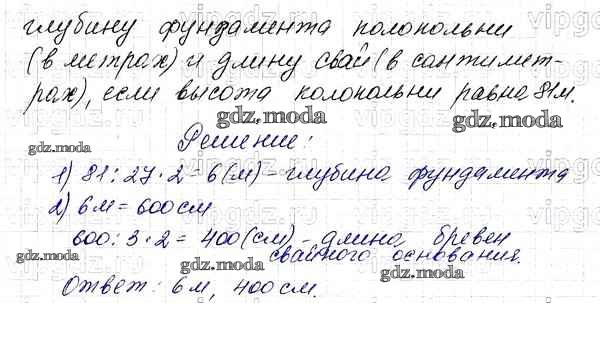 глубину фундамента колокольни
(в метрах) и длину свай (в сантимет-
рах), если высота колокольни равна 81м.
gdz.moda gdz.moda
Решение:
gdz.moda
1) 81:27·2=6(м) - глубина фундамента
2) 6м=600см
600:3·2=400(см) - длина бревен
свайного основания.
gdz.moda gdz.moda gdz.moda
Ответ: 6м, 400см.